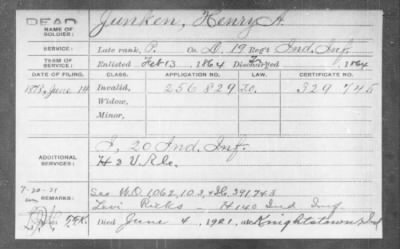 DEAD
NAME OF SOLDIER: Junken, Henry A.
SERVICE: Late rank, P. Co. D, 19 Reg't Ind. Inf.
TERM OF SERVICE: Enlisted Feb 13, 1864 Discharged 1864
DATE OF FILING. CLASS. APPLICATION NO. LAW. CERTIFICATE NO.
1878, June 14 Invalid, 256 829 329 745
Widow,
Minor,
ADDITIONAL SERVICES: I, 20 Ind. Inf.
REMARKS:
7-20-21
See W.O. 1062,103
Levi Ricks - H 140 Ind Inf
Died June 4, 1921, at Knightstown Ind